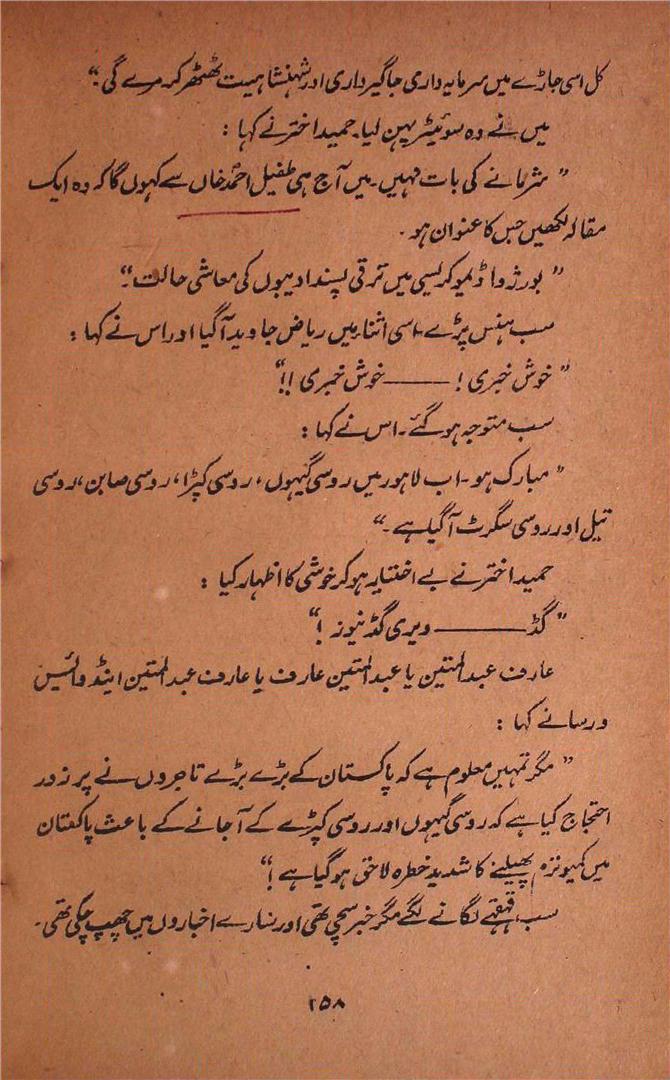 کل اسی جاڑے میں سرمایہ داری جاگیرداری اور شہنشاہیت ٹھٹھر کر مرے گی۔“
میں نے وہ سوئیٹر پہن لیا۔ حمید اختر نے کہا :
” شرمانے کی بات نہیں۔ میں آج ہی طفیل احمد خاں سے کہوں گا کہ وہ ایک
مقالہ لکھیں جس کا عنوان ہو۔
” بورژوا ڈیموکریسی میں ترقی پسند ادیبوں کی معاشی حالت“
سب ہنس پڑے۔ اسی اثنا میں ریاض جاوید آگیا اور اس نے کہا :
” خوش خبری ! ——— خوش خبری !!“
سب متوجہ ہو گئے۔ اس نے کہا :
” مبارک ہو۔ اب لاہور میں روسی گیہوں، روسی کپڑا، روسی صابن، روسی
تیل اور روسی سگرٹ آگیا ہے۔“
حمید اختر نے بے اختیار ہو کر خوشی کا اظہار کیا :
” گڈ ——— ویری گڈ نیوز !“
عارف عبدالمتین یا عبدالمتین عارف یا عارف عبدالمتین اینڈ وائس
ورسا نے کہا :
” مگر تمہیں معلوم ہے کہ پاکستان کے بڑے بڑے تاجروں نے پر زور
احتجاج کیا ہے کہ روسی گیہوں اور روسی کپڑے کے آجانے کے باعث پاکستان
میں کمیونزم پھیلنے کا شدید خطرہ لاحق ہو گیا ہے !“
سب قہقہے لگانے لگے مگر خبر سچی تھی اور سارے اخباروں میں چھپ چکی تھی۔
۲۵۸